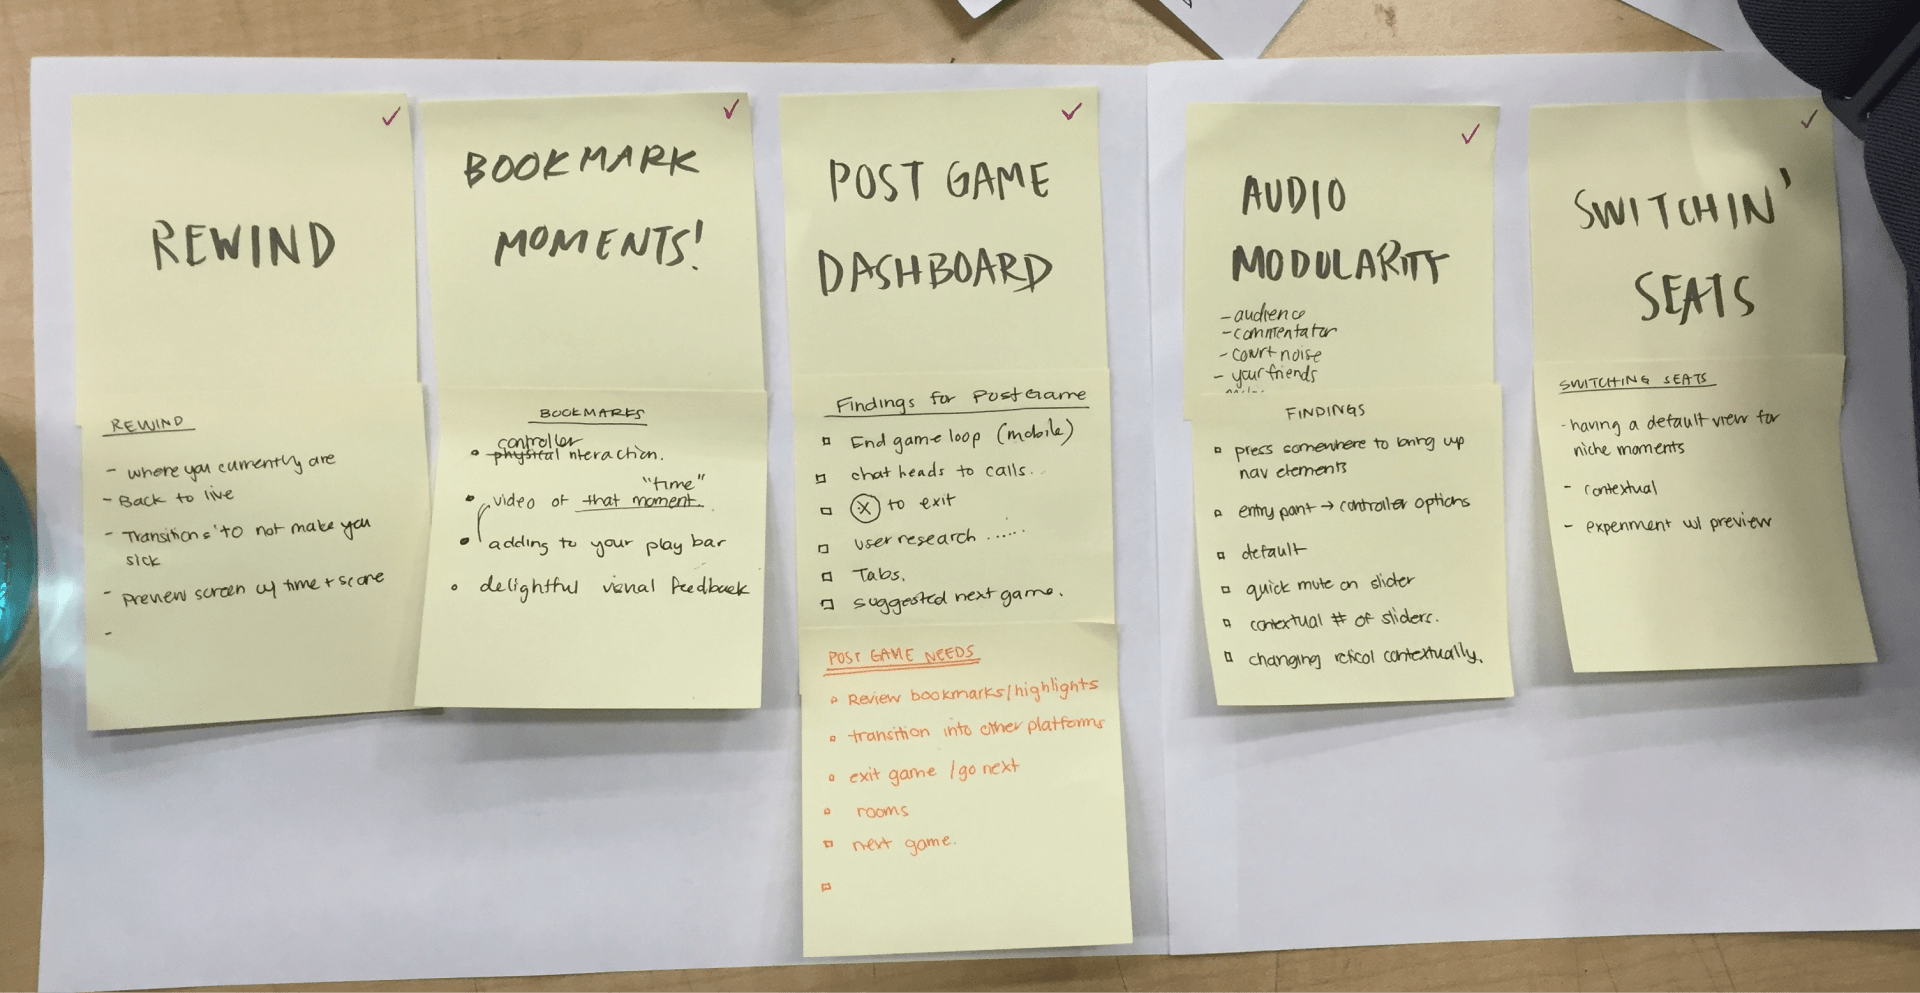 REWIND
REWIND
- where you currently are
- Back to live
- Transitions to not make you
sick
- preview screen w/ time + score
-
BOOKMARK
MOMENTS!
BOOKMARKS
controller
• physical interaction.
"time"
• video of that moment.
• adding to your play bar
• delightful visual feedback
POST GAME
DASHBOARD
Findings for Post Game
End game loop (mobile)
chat heads to calls...
X to exit
user research ......
Tabs.
suggested next game.
POST GAME NEEDS
Review bookmarks/highlights
transition into other platforms
exit game / go next
rooms
next game.
AUDIO
MODULARITY
- audience
- commentator
- court noise
- your friends
FINDINGS
press somewhere to bring up
nav elements
entry point → controller options
default
quick mute on slider
contextual # of sliders.
changing contextually.
SWITCHIN'
SEATS
SWITCHING SEATS
- having a default view for
niche moments
- contextual
- experiment w/ preview